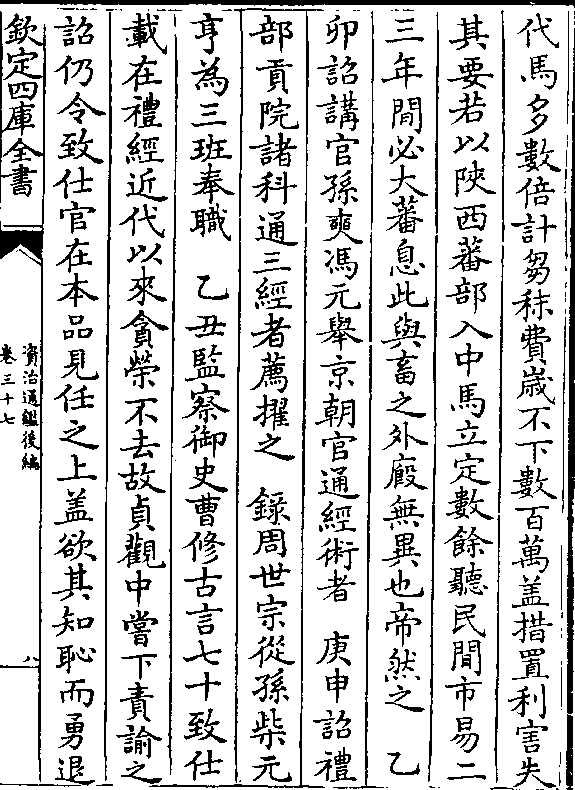 代馬多數倍計芻秣費歳不下數百萬盖措置利害失
其要若以陜西蕃部入中馬立定數餘聽民間市易二
三年間必大蕃息此與畜之外廐無異也帝然之　乙
卯詔講官孫奭馮元舉京朝官通經術者　庚申詔禮
部貢院諸科通三經者薦擢之　錄周世宗從孫柴元
亨為三班奉職　乙丑監察御史曹修古言七十致仕
載在禮經近代以來貪榮不去故貞觀中嘗下責諭之
詔仍令致仕官在本品見任之上盖欲其知恥而勇退
欽定四庫全書
資治通鑑後編
卷三十七
八